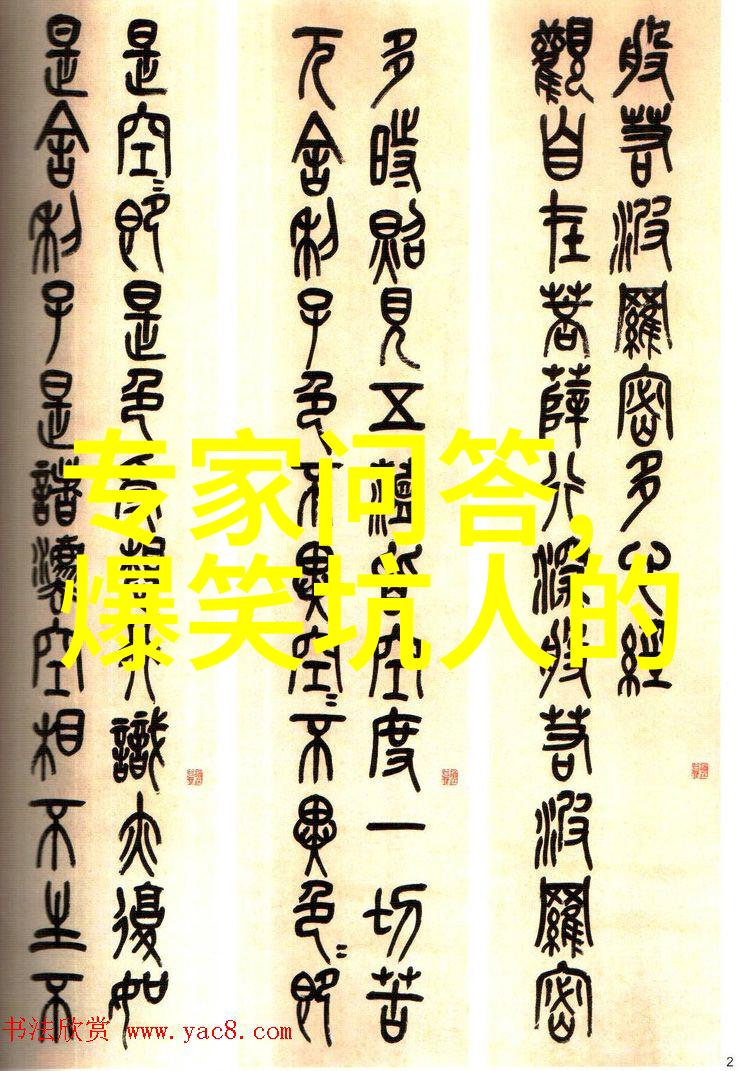 般若波羅密多心經
觀自在菩薩行深般若波羅密
多時照見五蘊皆空度一切苦
厄舍利子色不異空〻不異色〻即
是空〻即是色受想行識亦復如
是舍利子是諸灋空相不生不
专家问答，
爆笑坑人的
书法欣赏 www.yac8.com
2